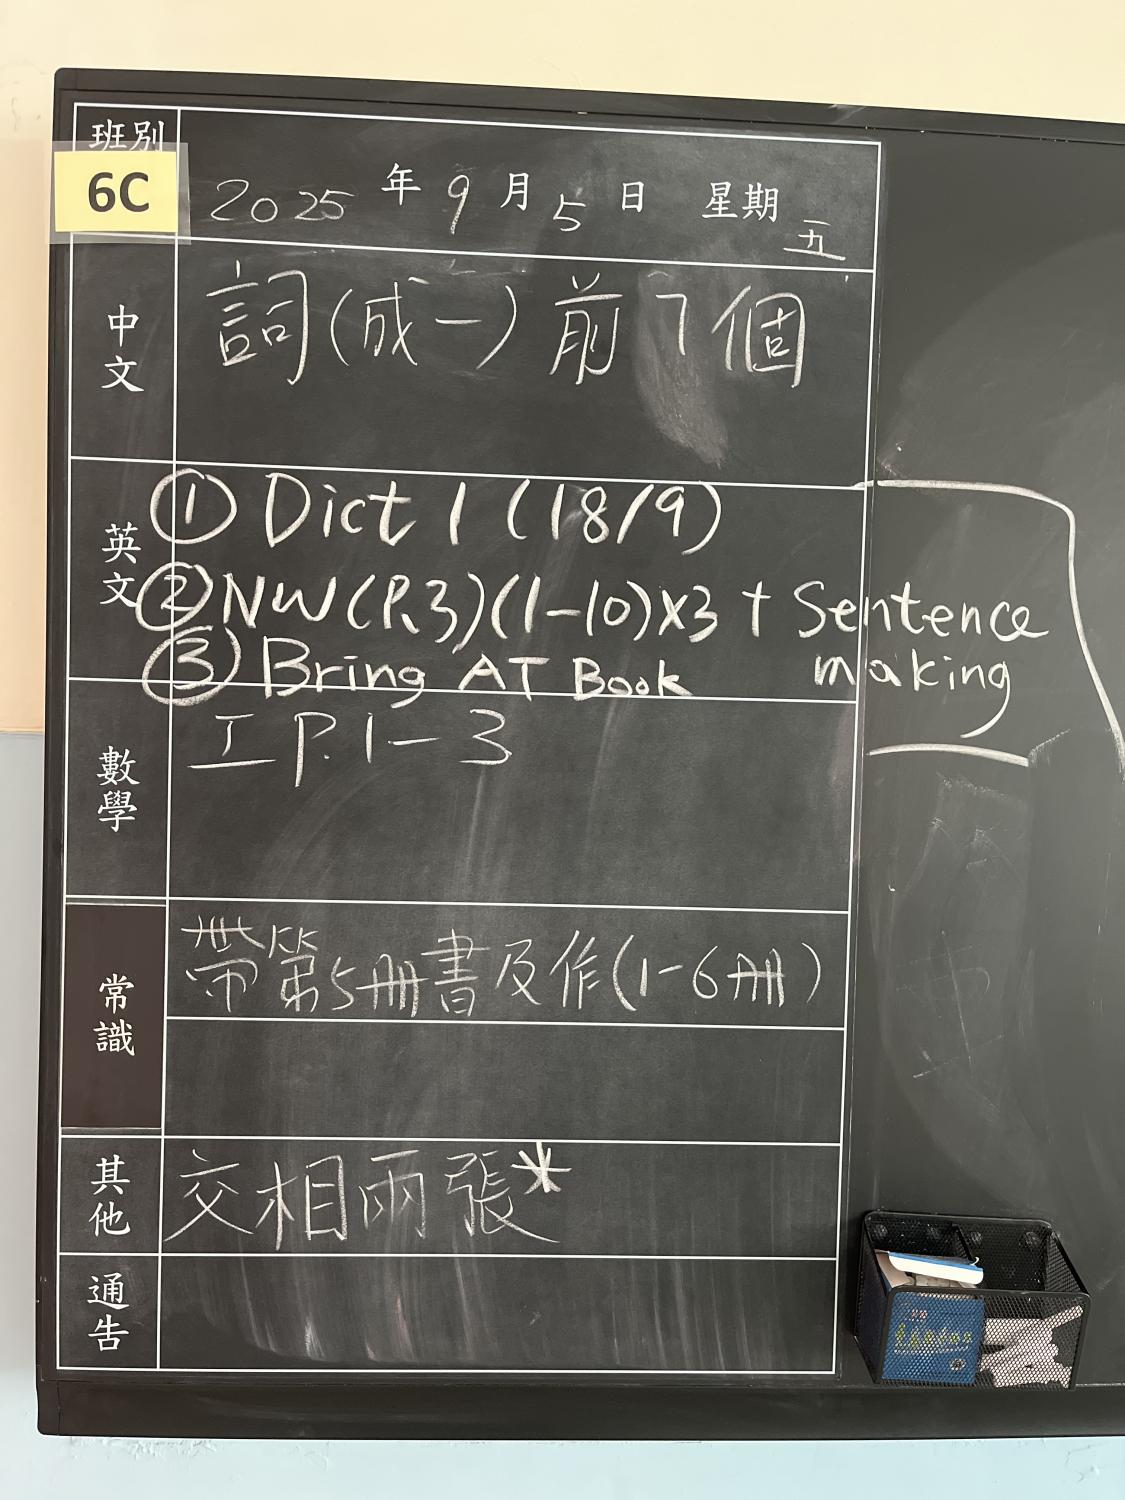 班別
6C
2025 年 9 月 5 日 星期 五
中文
詞(成一)前7個
英文
① Dict 1 (18/9)
② NW (P.3)(1-10)x3 + Sentence making
③ Bring AT Book
數學
工 P.1-3
常識
帶第5冊書及作(1-6冊)
其他
交相兩張*
通告